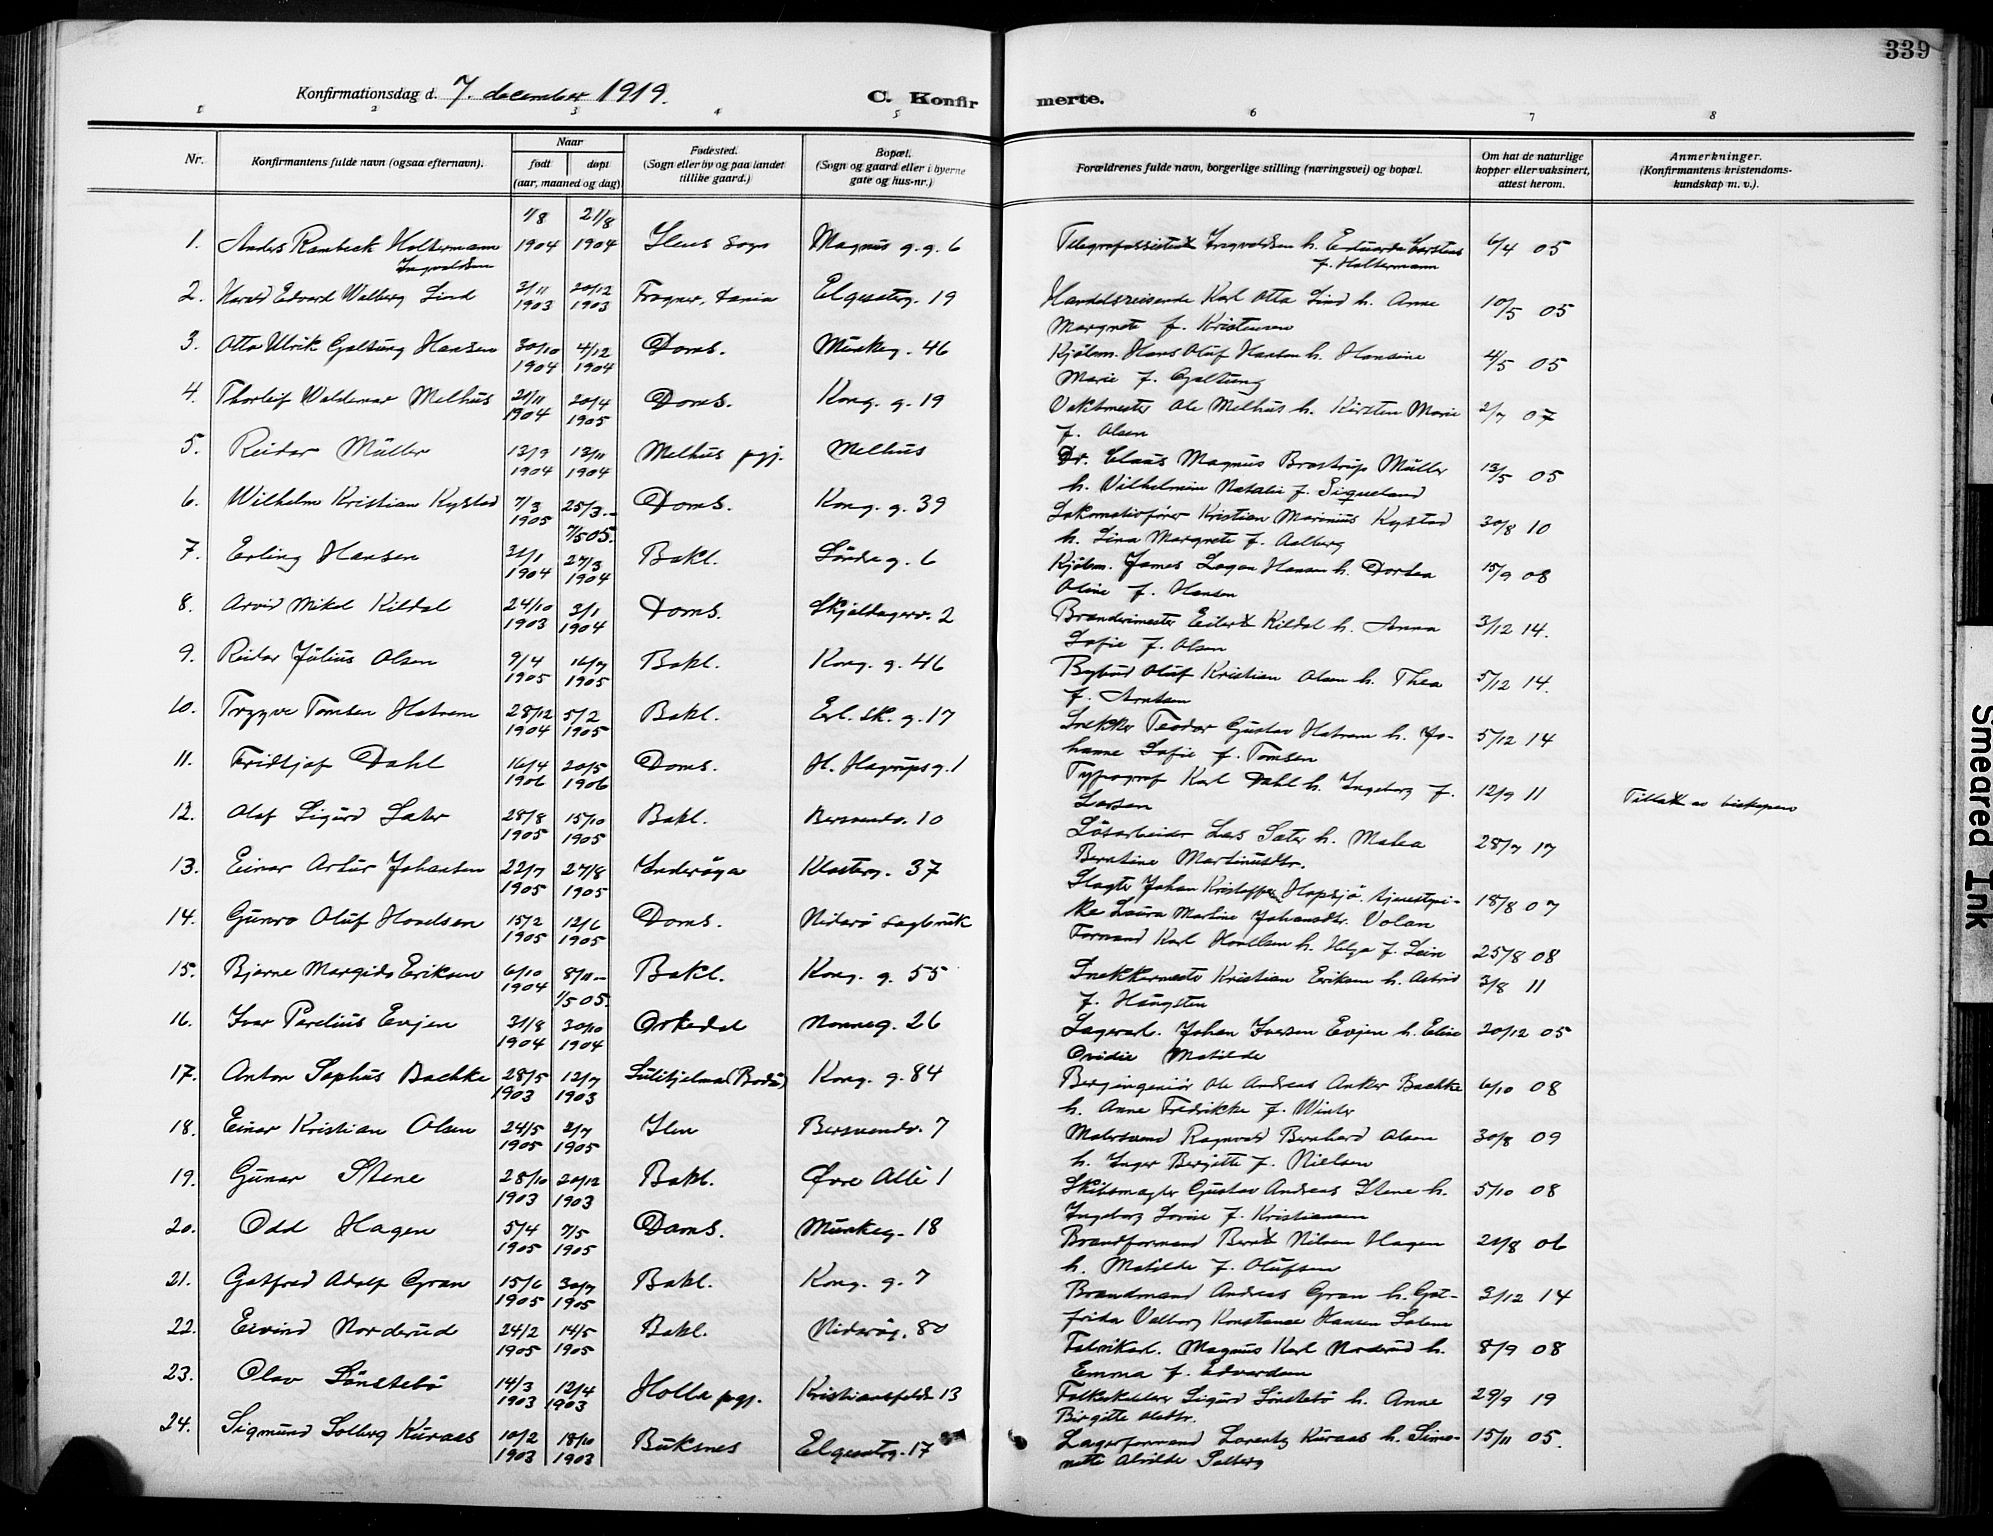 339
Konfirmationsdag d. 7. december 1919.
C. Konfirmerte.
1 2 3 4 5 6 7 8
Nr. Konfirmantens fulde navn (ogsaa efternavn). Naar født døpt (aar, maaned og dag) Fødested. (Sogn eller by og paa landet tillike gaard.) Bopæl. (Sogn og gaard eller i byerne gate og hus-nr.) Forældrenes fulde navn, borgerlige stilling (næringsvei) og bopæl. Om hat de naturlige kopper eller vaksinert, attest herom. Anmerkninger. (Konfirmantens kristendoms-kundskap m. v.).
1. Anders Rambeck Holtermann Ingvaldsen 1/8 1904 21/8 1904 Ilens sogn Magnus g. g. 6 Telegrafassistent Ingvaldsen h.
f. Holtermann 6/4 05
2. Harald Edvard Walberg Lind 2/11 1903 20/12 1903 Frogner, Elgesetrg. 19 Handelsreisende Karl Otto Lind h. Anne
Margrete f. Kristensen 10/5 05
3. Otto Ulrik Galtung Hansen 30/10 1904 4/12 1904 Doms. Munkeg. 46 Kjøbm. Hans Oluf Hansen h. Hansine
Marie f. Galtung 4/5 05
4. Thorleif Waldemar Melhus 21/11 1904 20/4 1905 Doms. Kong. g. 19 Vaktmester Ole Melhus h. Kirsten Marie
f. Olsen 2/7 07
5. Reidar Müller 13/9 1904 13/11 1904 Melhus pgj. Melhus Dr. Claus Magnus Brostrup Müller
h. Vilhelmine Natalie f. Siqueland 13/5 05
6. Wilhelm Kristian Kystad 7/3 1905 25/3 - 7/5 05. Doms. Kong. g. 39 Lokomotivfører Kristian Marinius Kystad
h. Lina Margrete f. Aalberg 30/8 10
7. Erling Hansen 31/1 1904 27/3 1904 Bakl. Søndreg. 6 Kjøbm. James Logan Hansen h. Dortea
Oline f. Hansen 15/9 08
8. Arvid Mikal Kildal 24/10 1903 3/1 1904 Doms. Skjoldagerv. 2 Branderimester Eilert Kildal h. Anna
Sofie f. Olsen 3/12 14.
9. Reidar Julius Olsen 9/4 1905 16/7 1905 Bakl. Kong. g. 46 Bybud Oluf Kristian Olsen h. Thea
f. Arntsen 5/12 14.
10. Trygve Tomsen Hatrem 28/12 1904 5/2 1905 Bakl. Erl. Sk. g. 17 Snekker Teodor Gustav Hatrem h. Jo-
hanne Sofie f. Tomsen 5/12 14
11. Fridtjof Dahl 16/4 1906 20/5 1906 Doms. H. Hagrupsg. 1 Typograf Karl Dahl h. Ingeborg f.
Larsen 12/9 11 Tillatt av biskopen
12. Olaf Sigurd Sater 28/8 1905 15/10 1905 Bakl. Bersvendv. 10 Løsarbeider Lars Sater h. Malea
Berntine Martinusdtr. 28/7 17
13. Einar Artur Johansen 22/7 1905 27/8 1905 Inderøya Klosterg. 37 Slagter Johan Kristoffer Hopsjø. tjenestepi-
ke Laura Martine Johansdtr. Volan 18/8 07
14. Gunvo Oluf Hovelsen 15/2 1905 12/6 1905 Doms. Niderø sagbruk Formand Karl Hovelsen h. Helga f. Lein 25/8 08
15. Bjarne Margido Eriksen 6/10 1904 8/11 - 1/5 05. Bakl. Kong. g. 55 Snekkermester Kristian Eriksen h. Astrid
f. Haugsten 3/8 11
16. Ivar Perelius Evjen 31/8 1904 30/10 1904 Orkedal Nonneg. 26 Lagerarb. Johan Iversen Evjen h. Eline
Ovidie Matilde 20/12 05
17. Anton Sophus Bachke 28/5 1903 12/7 1903 Sulitjelma (Bodø) Kong. g. 84 Bergingeniør Ole Andreas Anker Bachke
h. Anne Fredrikke f. Winter 6/10 08
18. Einar Kristian Olsen 24/5 1905 2/7 1905 Ilen Bersvendv. 7 Malersvend Ragnvald Bernhard Olsen
h. Inger Bergitte f. Nielsen 30/8 09
19. Gunar Stene 28/10 1903 20/12 1903 Bakl. Øvre Allé 1 Skibsmægler Gustav Andreas Stene h.
Ingeborg Lovise f. Kristiansen 5/10 08
20. Odd Hagen 5/4 1905 7/5 1905 Doms. Munkeg. 18 Brandformand Bernt Nilsen Hagen
h. Matilde f. Olufsen 21/8 06
21. Gotfred Adolf Gran 15/6 1905 30/7 1905 Bakl. Kong. g. 7 Brandmand Andreas Gran h. Got-
frida Valborg Konstanse Hansen Salem 3/12 14
22. Eivind Norderud 24/2 1905 14/5 1905 Bakl. Niderøg. 80 Fabrikarb. Magnus Karl Norderud h.
Emma f. Edvardsen 8/9 08
23. Olav Sønstebø 14/3 1903 12/4 1903 Holla pgj. Kristiansfeldt 13 Sigurd Sønstebø h. Anne
Birgitte Olsdtr. 29/9 19
24. Sigmund Solberg Kuraas 10/2 1903 18/10 1903 Buksnes Elgesetrg. 17 Lagerformand Lorentz Kuraas h. Simo-
nette Alvilde Solberg 15/11 05.
Smeared Ink